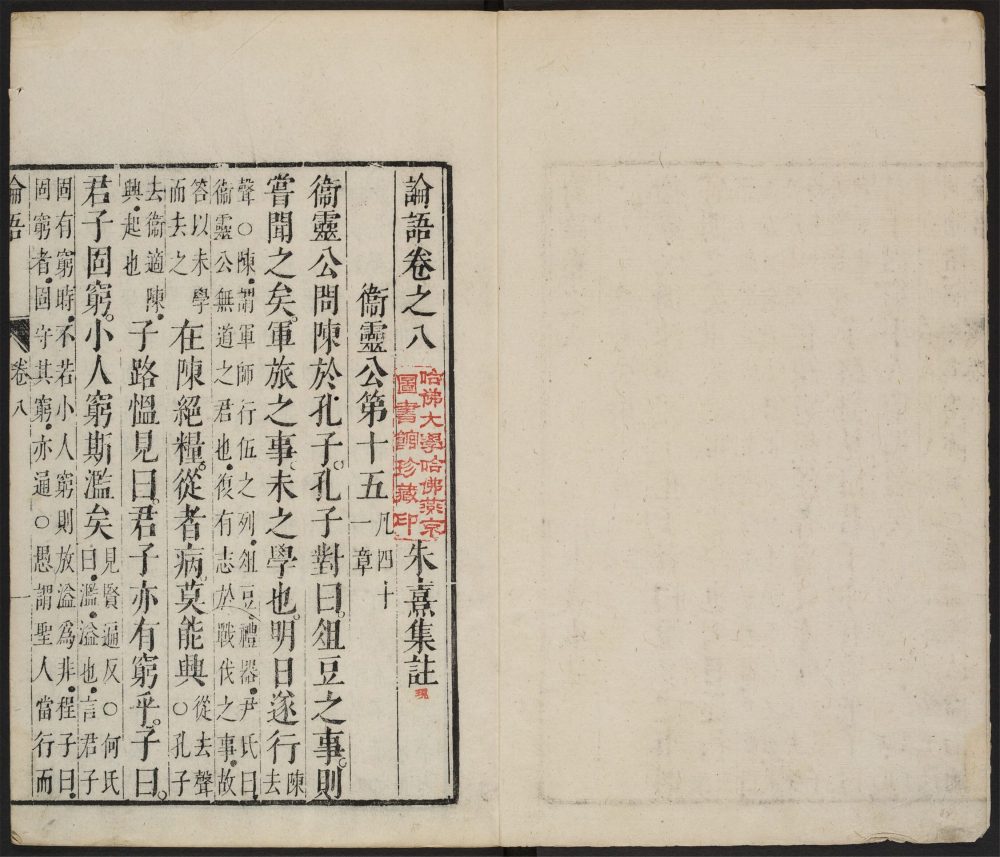 論語卷之八
朱熹集註
哈佛大學哈佛燕京
圖書館珍藏印
衞靈公第十五
凡四十
一章
衞靈公問陳於孔子。孔子對曰。俎豆之事。則
嘗聞之矣。軍旅之事。未之學也。明日遂行
陳去
聲○陳。謂軍師行伍之列。俎豆。禮器。尹氏曰。
衞靈公無道之君也。復有志於戰伐之事。故
答以未學
而去之
在陳絕糧。從者病。莫能興
從去聲
○孔子
去衞適陳。
興。起也
子路慍見曰。君子亦有窮乎。子曰。
君子固窮。小人窮斯濫矣
見賢遍反○何氏
曰。濫。溢也。言君子
固有窮時。不若小人窮則放溢爲非。程子曰。
固窮者。固守其窮。亦通○愚謂聖人當行而
論語
卷八
一